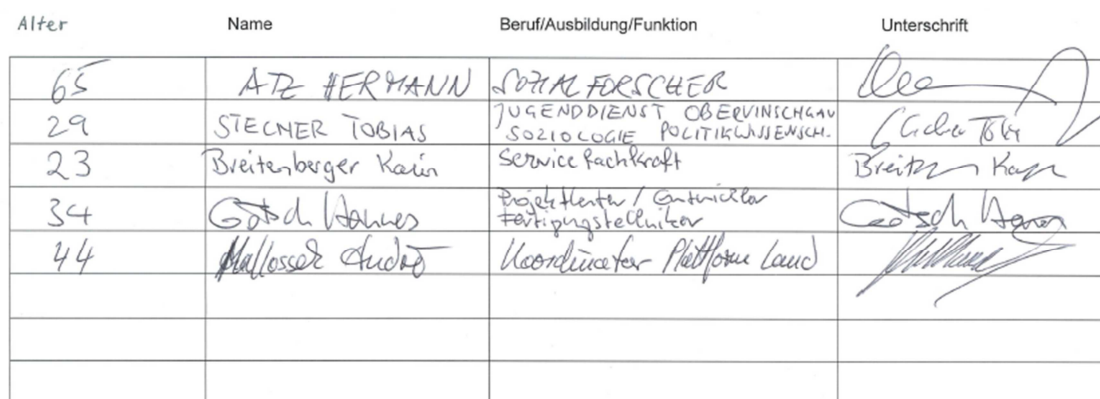 Alter Name Beruf/Ausbildung/Funktion Unterschrift
65 ATZ HERMANN SOZIALFORSCHER
29 STECHER TOBIAS JUGENDDIENST OBERVINSCHGAU
SOZIOLOGIE POLITIKWISSENSCH.
23 Breitenberger Karin Servicefachkraft
34 Götsch Hannes Projektleiter / Entwickler
Fertigungstechniker Götsch Hannes
44 André Koordinator Plattform Land